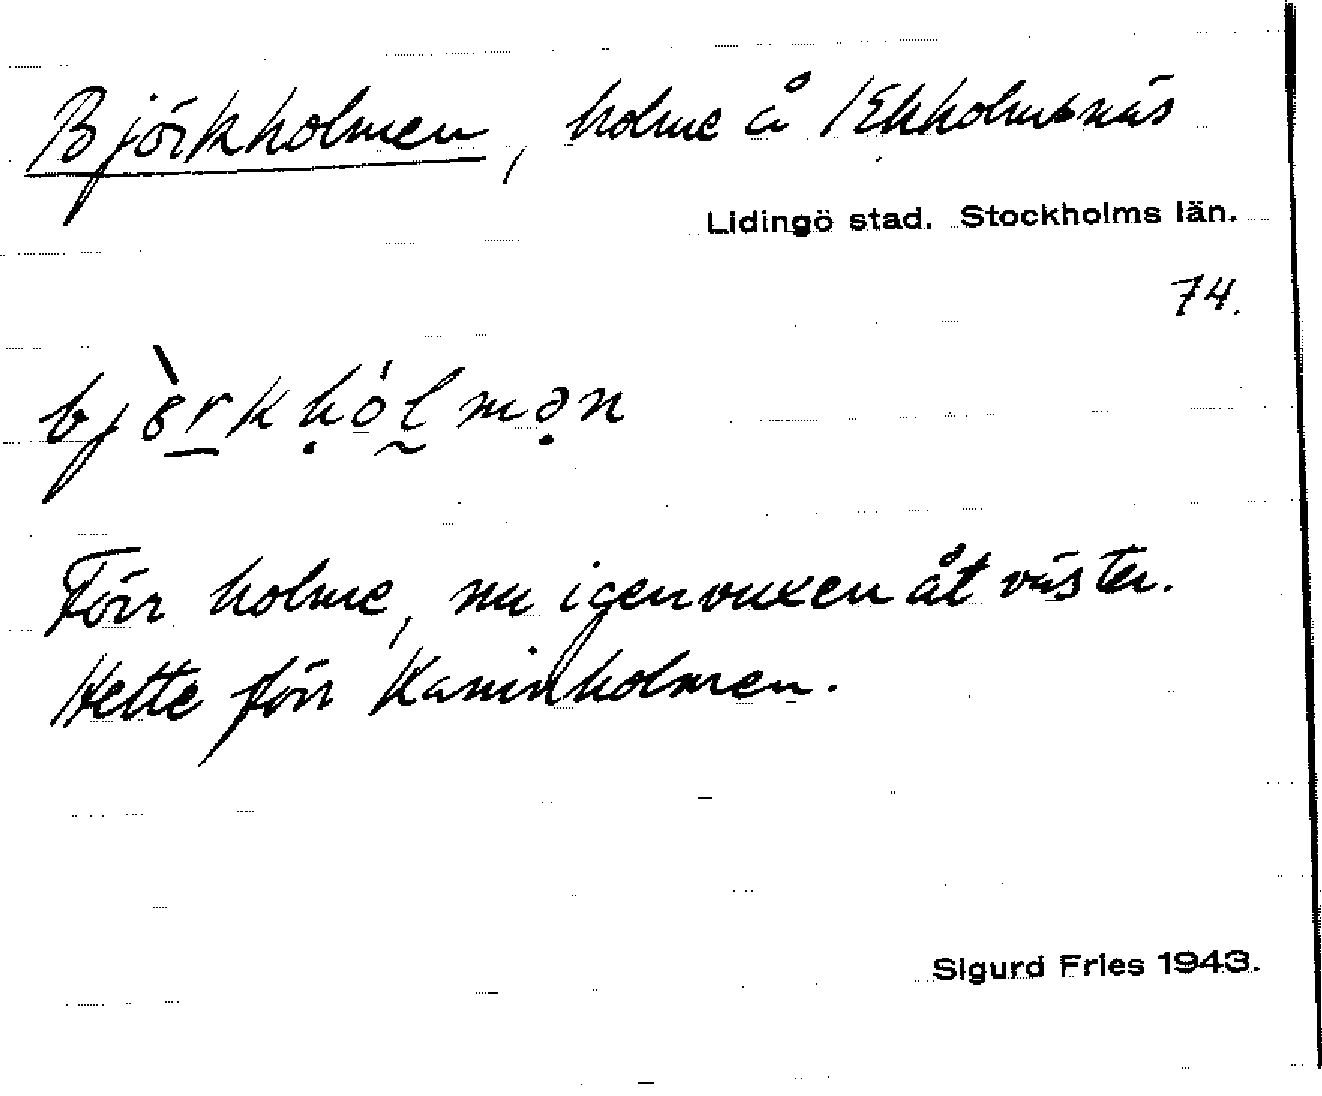 Björkholmen, holme å Ekholmsnäs
Lidingö stad. Stockholms län.
74.
Förr holme, nu igenvuxen åt väster.
Hette förr Kaninholmen.
Sigurd Fries 1943.